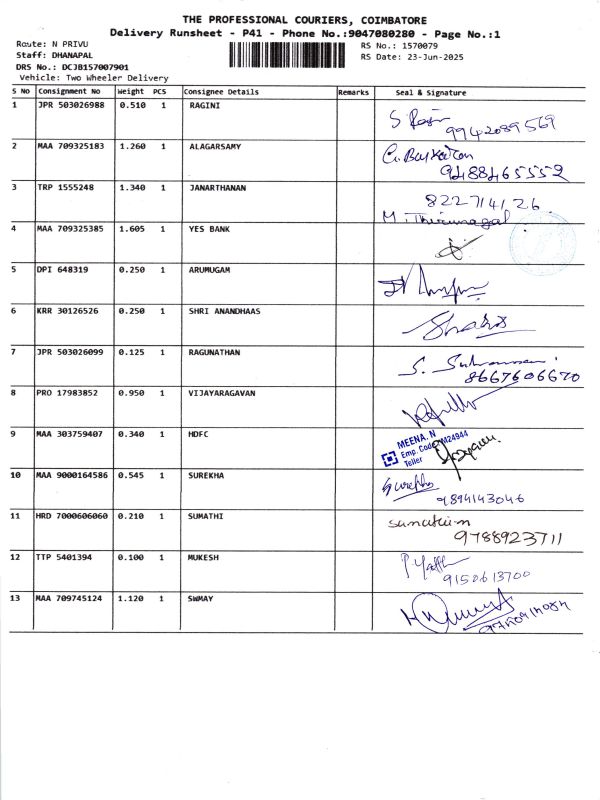 THE PROFESSIONAL COURIERS, COIMBATORE
Delivery Runsheet - P41 - Phone No.:9047080280 - Page No.:1
Route: N PRIVU
Staff: DHANAPAL
DRS No.: DCJB157007901
Vehicle: Two Wheeler Delivery
RS No.: 1570079
RS Date: 23-Jun-2025
S No Consignment No Weight PCS Consignee Details Remarks Seal & Signature
1 JPR 503026988 0.510 1 RAGINI
9942089569
2 MAA 709325183 1.260 1 ALAGARSAMY
G. Baskaran
9488465552
3 TRP 1555248 1.340 1 JANARTHANAN
822714126
4 MAA 709325385 1.605 1 YES BANK
5 DPI 648319 0.250 1 ARUMUGAM
6 KRR 30126526 0.250 1 SHRI ANANDHAAS
7 JPR 503026099 0.125 1 RAGUNATHAN
8667606670
8 PRO 17983852 0.950 1 VIJAYARAGAVAN
9 MAA 303759407 0.340 1 HDFC
MEENA. N
Emp. Code
Teller
10 MAA 9000164586 0.545 1 SUREKHA
Surekha
9894143046
11 HRD 7000606060 0.210 1 SUMATHI
sumathi.m
9788923711
12 TTP 5401394 0.100 1 MUKESH
9150613700
13 MAA 709745124 1.120 1 SWMAY